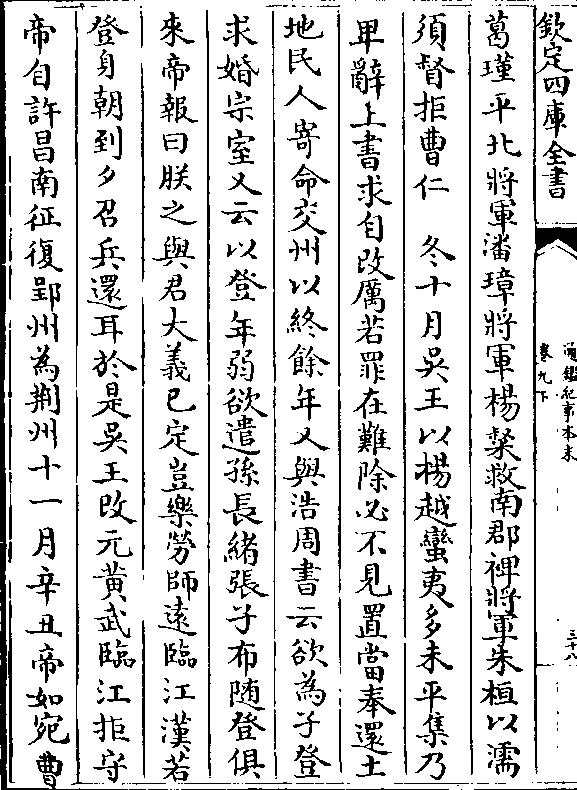 欽定四庫全書
通鑑紀事本末
卷九下
三十八
葛瑾平北將軍潘璋將軍楊粲救南郡裨將軍朱桓以濡
須督拒曹仁　冬十月吳王以楊越蠻夷多未平集乃
卑辭上書求自改厲若罪在難除必不見置當奉還土
地民人寄命交州以終餘年又與浩周書云欲為子登
求婚宗室又云以登年弱欲遣孫長緒張子布隨登俱
來帝報曰朕之與君大義已定豈樂勞師遠臨江漢若
登身朝到夕召兵還耳於是吳王改元黃武臨江拒守
帝自許昌南征復郢州為荆州十一月辛丑帝如宛曹